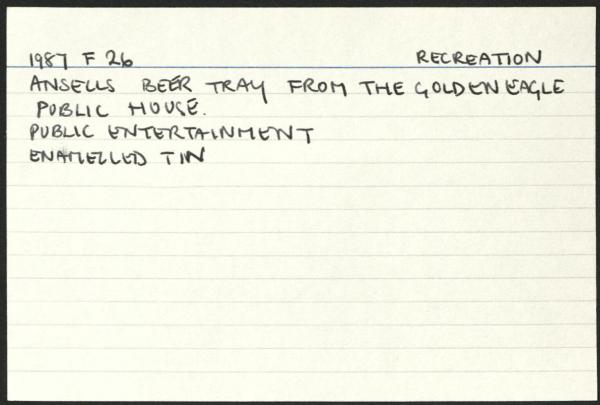 1987 F 26 RECREATION
ANSELLS BEER TRAY FROM THE GOLDEN EAGLE
PUBLIC HOUSE.
PUBLIC ENTERTAINMENT
ENAMELLED TIN